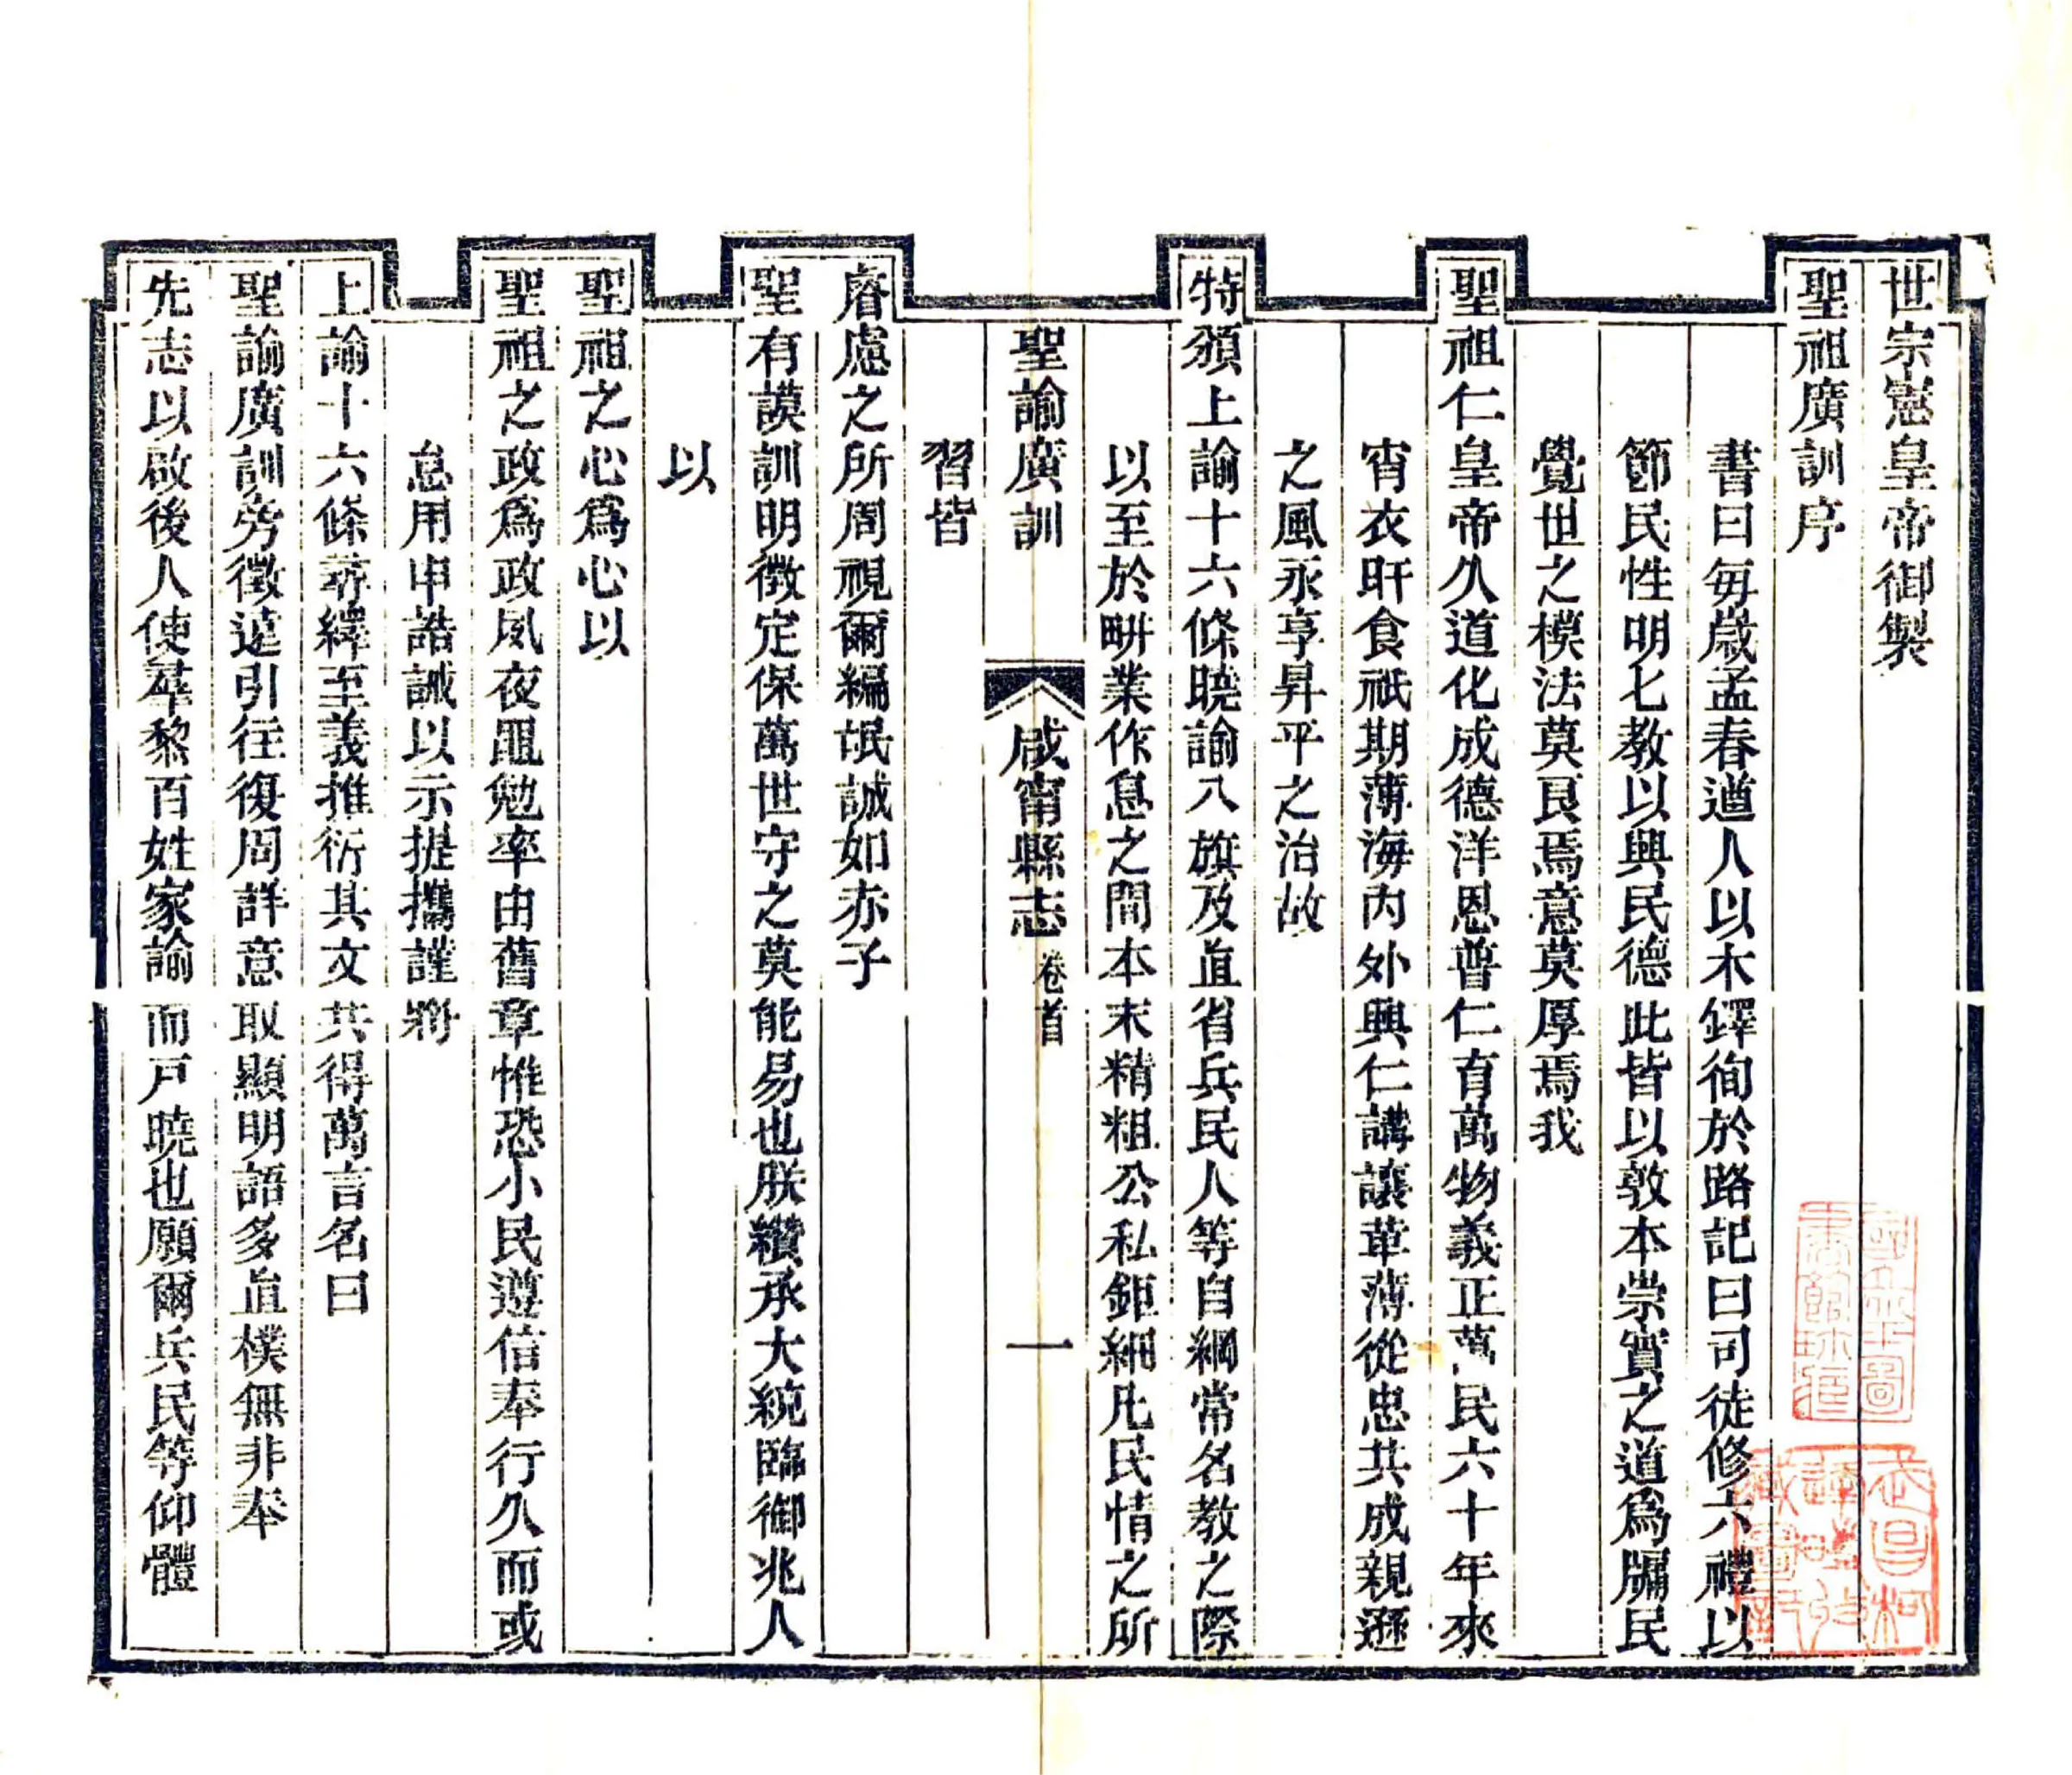 世宗憲皇帝御製
聖祖廣訓序
書曰每歲孟春遒人以木鐸徇於路記曰司徒修六禮以
節民性明七教以興民德此皆以敦本崇實之道爲牖民
覺世之模法莫良焉意莫厚焉我
聖祖仁皇帝久道化成德洋恩普仁育萬物義正萬民六十年來
宵衣旰食祇期薄海內外興仁講讓革薄從忠共成親遜
之風永享昇平之治故
特頒上諭十六條曉諭八旗及直省兵民人等自綱常名教之際
以至於畊業作息之間本末精粗公私鉅細凡民情之所
聖諭廣訓 咸甯縣志 卷首 一
習皆
睿慮之所周視爾編氓誠如赤子
聖有謨訓明徵定保萬世守之莫能易也朕纘承大統臨御兆人
以
聖祖之心爲心以
聖祖之政爲政夙夜黽勉率由舊章惟恐小民遵信奉行久而或
怠用申誥誡以示提攜謹將
上諭十六條尋繹至義推衍其文共得萬言名曰
聖諭廣訓旁徵遠引往復周詳意取顯明語多直樸無非奉
先志以啟後人使羣黎百姓家諭而戸曉也願爾兵民等仰體